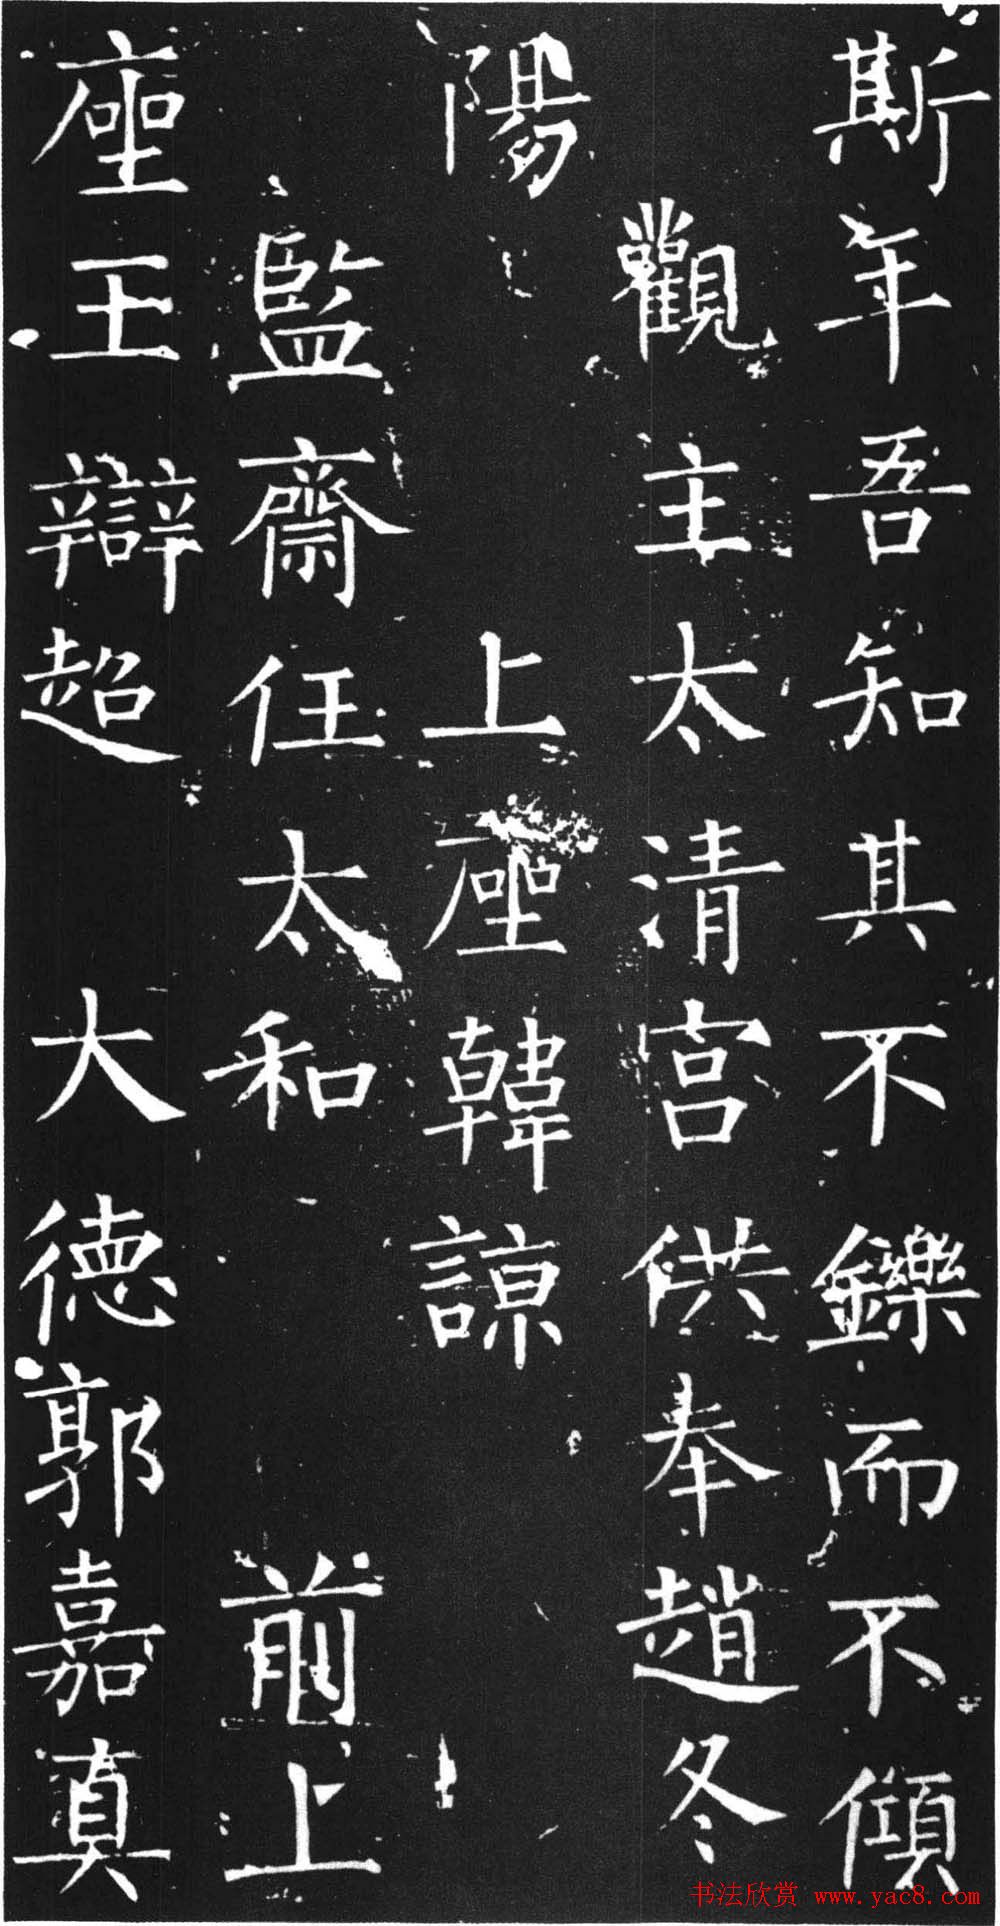 斯年吾知其不鑠而不傾
觀主太清宮供奉趙冬
陽 上座韓諒
監齋任太和 前上
座王辯超 大德郭嘉真
书法欣赏 www.yac8.com